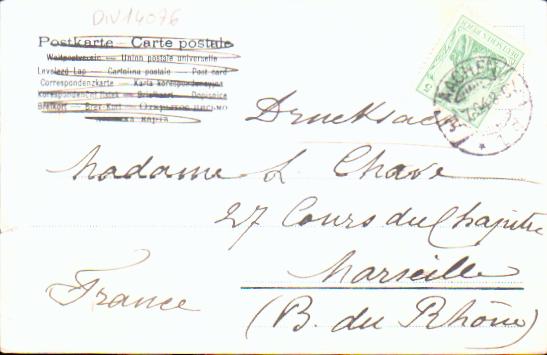 DIV14076
Postkarte — Carte postale
Weltpostverein — Union postale universelle
Levelező-Lap — Cartolina postale — Post card
Correspondenzkarte — Karta korespondencyjna
Korespondenční lístek — Briefkaart — Dopisnice
Brefkort — Brev-Kort — Открытое письмо
AACHEN
Drucksache
Madame L Chave
27 Cours du Chapitre
Marseille
France
(B. du Rhône)